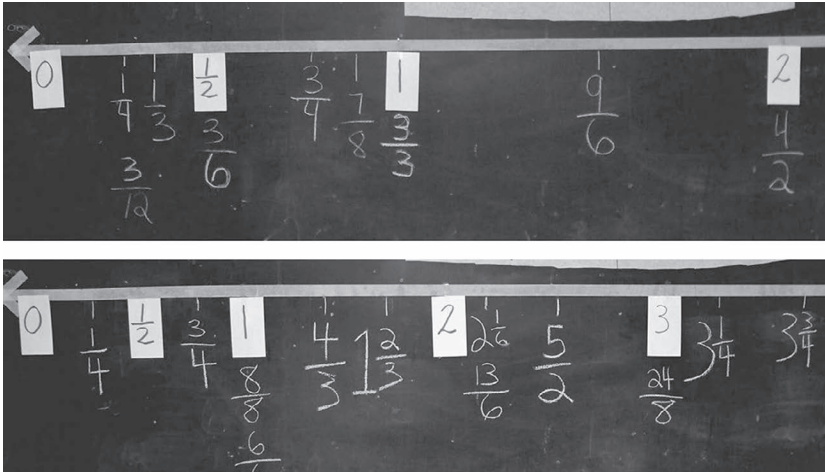 0 1/4 1/3 1/2 3/4 7/8 1 9/6 2
3/12 3/6 3/3 4/2
0 1/4 1/2 3/4 1 4/3 1 2/3 2 2 1/6 5/2 3 3 1/4 3 3/4
8/8 13/6 24/8
6